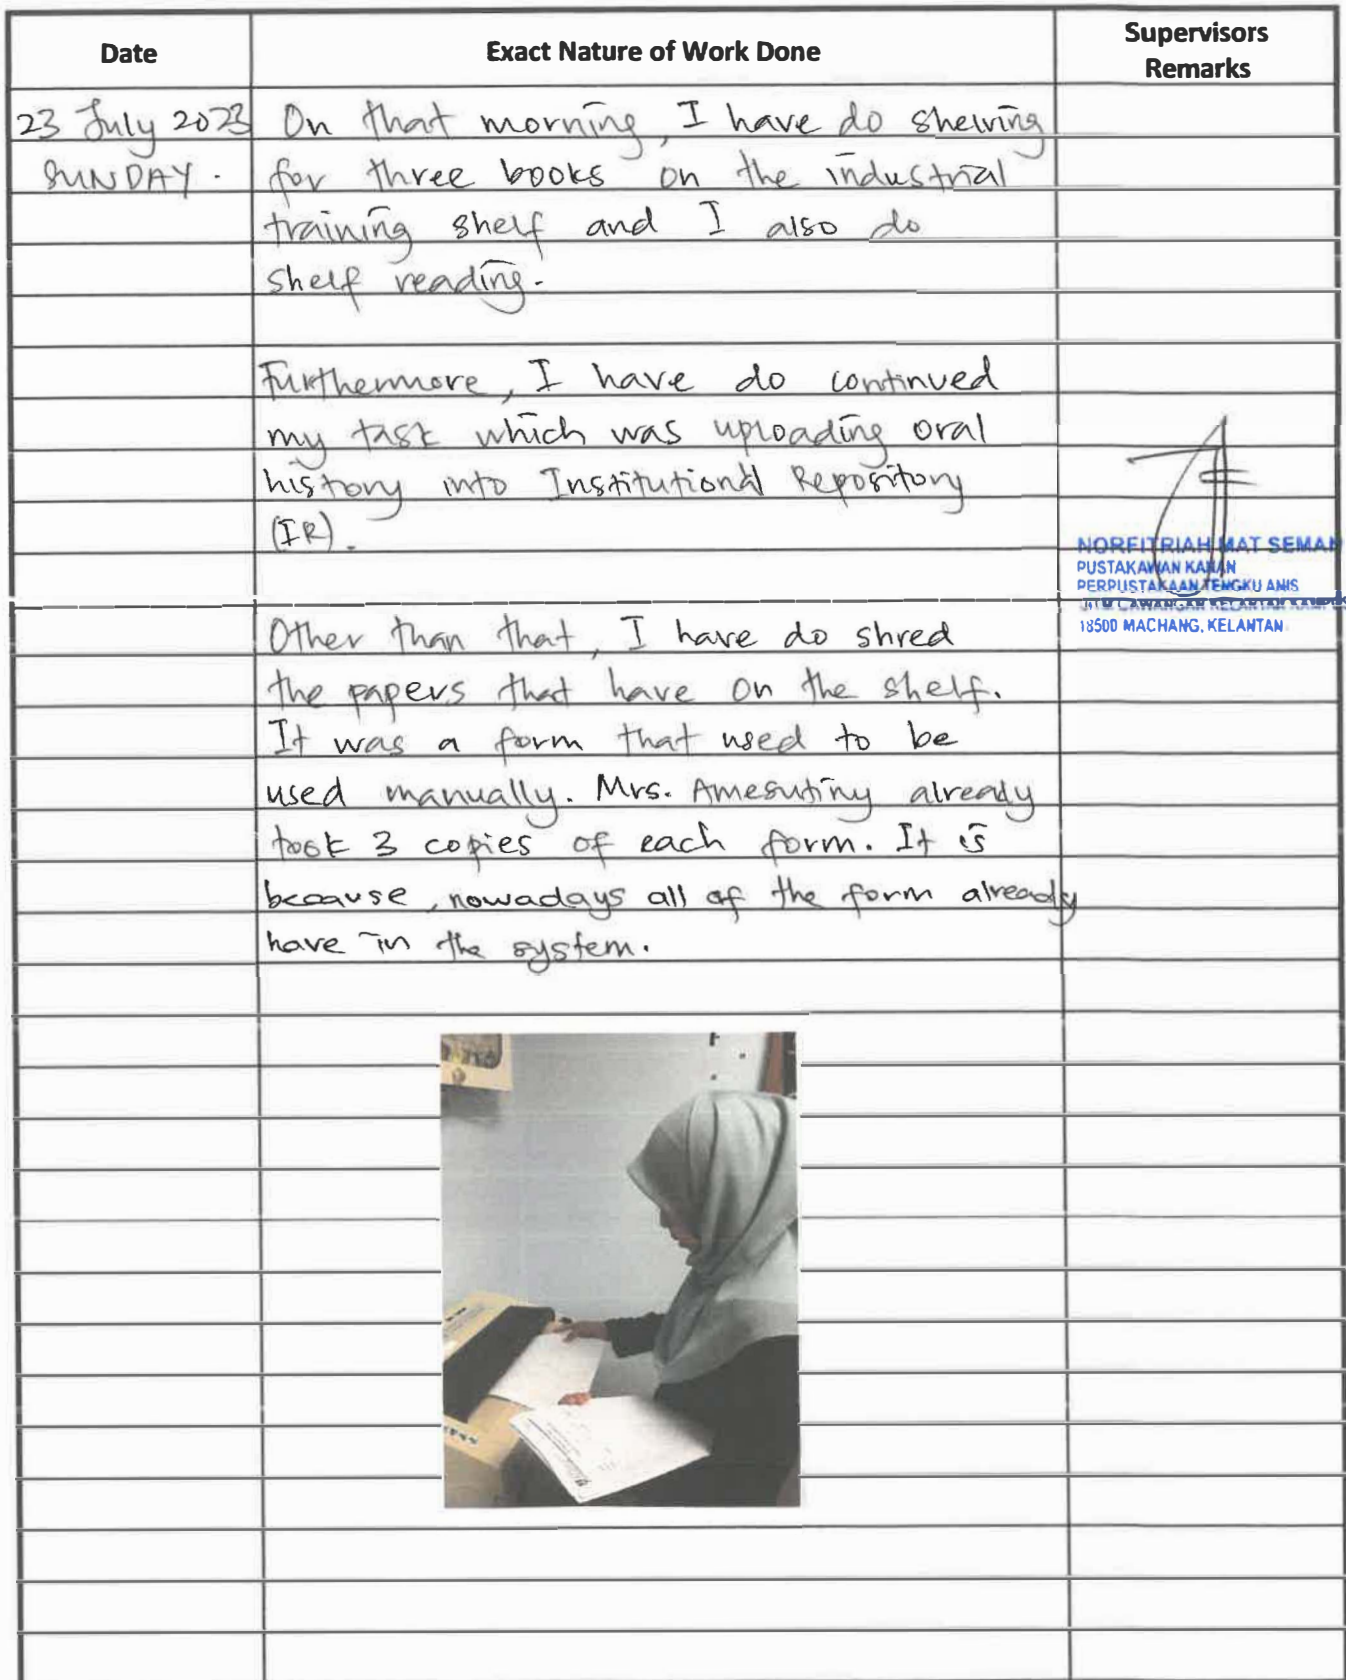 Date
Exact Nature of Work Done
Supervisors
Remarks
23 July 2023
SUNDAY.
On that morning, I have do shelving
for three books on the industrial
training shelf and I also do
shelf reading.
Furthermore, I have do continued
my task which was uploading oral
history into Institutional Repository
(IR).
Other than that, I have do shred
the papers that have on the shelf.
It was a form that used to be
used manually. Mrs. Amesutiny already
took 3 copies of each form. It is
because, nowadays all of the form already
have in the system.
NORFITRIAH MAT SEMAN
PUSTAKAWAN KANAN
PERPUSTAKAAN TENGKU ANIS
UITM CAWANGAN KELANTAN
18500 MACHANG, KELANTAN